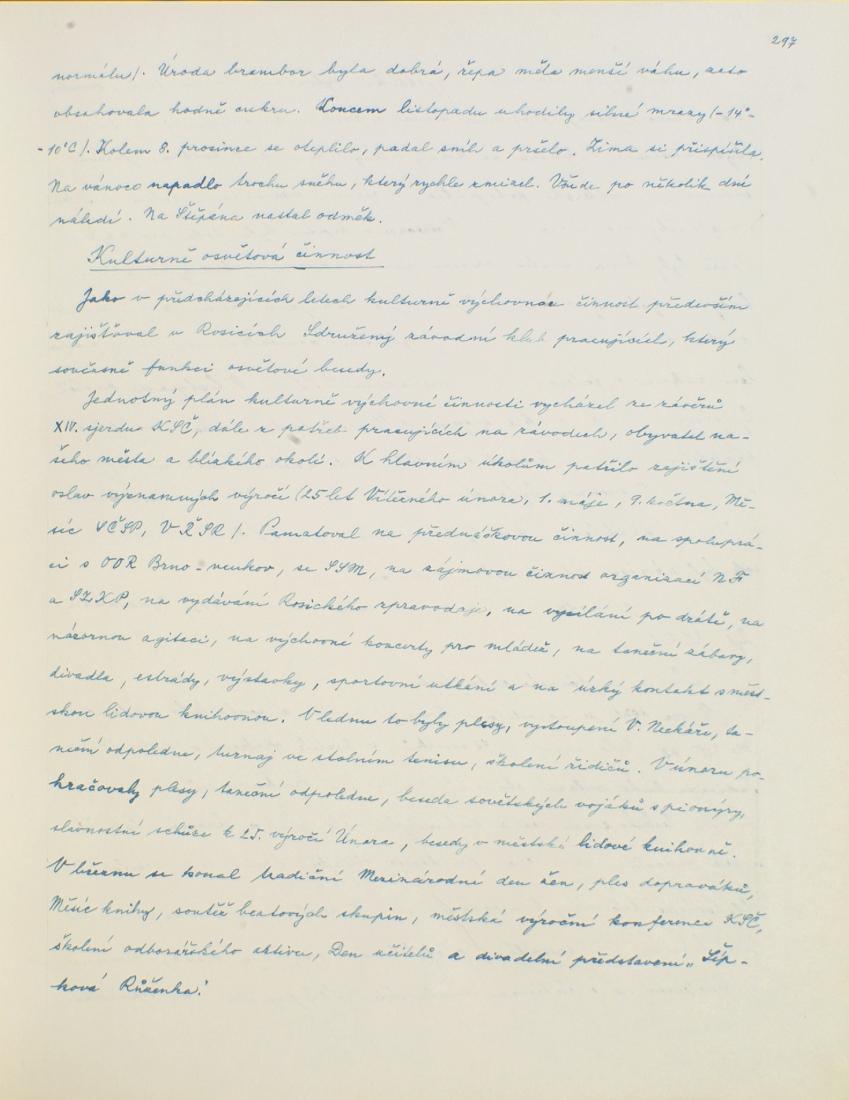 297
normálu/. Úroda brambor byla dobrá, řepa měla menší váhu, zato
obsahovala hodně cukru. Koncem listopadu uhodily silné mrazy (-14°-
-10°C/. Kolem 8. prosince se oteplilo, padal sníh a pršelo. Zima si přispíšila.
Na vánoce napadlo trochu sněhu, který rychle zmizel. Všude po několik dní
náledí. Na Štěpána nastal odměk.
Kulturně osvětová činnost
Jako v předcházejících letech kulturně výchovnou činnost především
zajišťoval v Rosicích Sdružený závodní klub pracujících, který
současně funkci osvětové besedy.
Jednotný plán kulturně výchovné činnosti vycházel ze závěrů
XIV. sjezdu KSČ, dále z potřeb pracujících na závodech, obyvatel na-
šeho města a blízkého okolí. K hlavním úkolům patřilo zajištění
oslav významných výročí (25 let Vítězného února, 1. máje, 9. května, Mě-
síc SČSP, VŘSR/. Pamatoval na přednáškovou činnost, na spoluprá-
ci s OOR Brno-venkov, se SSM, na zájmovou činnost organizací NF
a SZKP, na vydávání Rosického zpravodaje, na vysílání po drátě, na
názornou agitaci, na výchovné koncerty pro mládež, na taneční zábavy,
divadla, estrády, výstavky, sportovní utkání a na úzký kontakt s měst-
skou lidovou knihovnou. V lednu to byly plesy, vystoupení V. Neckáře, ta-
neční odpoledne, turnaj ve stolním tenisu, školení řidičů. V únoru po-
kračovaly plesy, taneční odpoledne, beseda sovětských vojáků s pionýry,
slavnostní schůze k 25. výročí Února, besedy v městské lidové knihovně.
V březnu se konal tradiční Mezinárodní den žen, ples dopraváků,
Měsíc knihy, soutěž beatových skupin, městská výroční konference KSČ,
školení odborářského aktivu, Den učitelů a divadelní představení „Šíp-
ková Růženka".